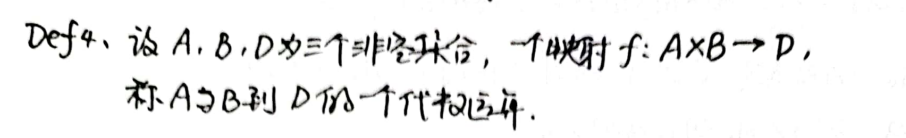 Def4、设 A, B, D为三个非空集合, 一个映射 f: A×B→D,
称A与B到 D 的一个代数运算.